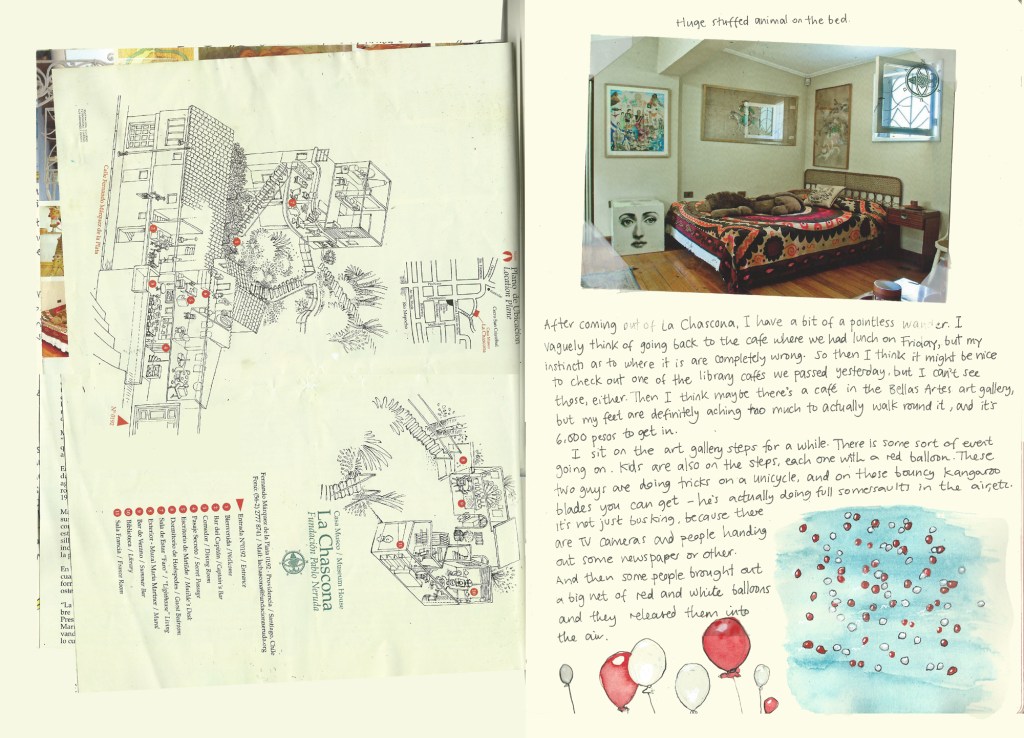 Huge stuffed animal on the bed.
After coming out of La Chascona, I have a bit of a pointless wander. I
vaguely think of going back to the cafe where we had lunch on Friday, but my
instinct as to where it is are completely wrong. So then I think it might be nice
to check out one of the library cafés we passed yesterday, but I can't see
those, either. Then I think maybe there's a café in the Bellas Artes art gallery,
but my feet are definitely aching too much to actually walk round it, and it's
6,000 pesos to get in.
I sit on the art gallery steps for a while. There is some sort of event
going on. Kids are also on the steps, each one with a red balloon. These
two guys are doing tricks on a unicycle, and on those bouncy kangaroo
blades you can get - he's actually doing full somersaults in the air, etc.
It's not just busking, because there
are TV cameras and people handing
out some newspaper or other.
And then some people brought out
a big net of red and white balloons
and they released them into
the air.
Plano de Ubicación
Location Plane
Cerro San Cristóbal
La Chascona
Calle Fernando Márquez de la Plata
Nº 0192
Casa Museo / Museum House
La Chascona
Fundación Pablo Neruda
Fernando Márquez de la Plata 0192 - Providencia / Santiago, Chile
Entrada Nº0192 / Entrance
Bienvenida / Welcome
Bar del Capitán / Captain's Bar
Comedor / Dining Room
Pasaje Secreto / Secret Passage
Escritorio de Matilde / Matilde's Desk
Dormitorio de Huéspedes / Guest Bedroom
Sala de Estar "Faro" / "Lighthouse" Living
Exterior - Mural María Martner / Mural
Bar de Verano / Summer Bar
Biblioteca / Library
Sala Francia / France Room